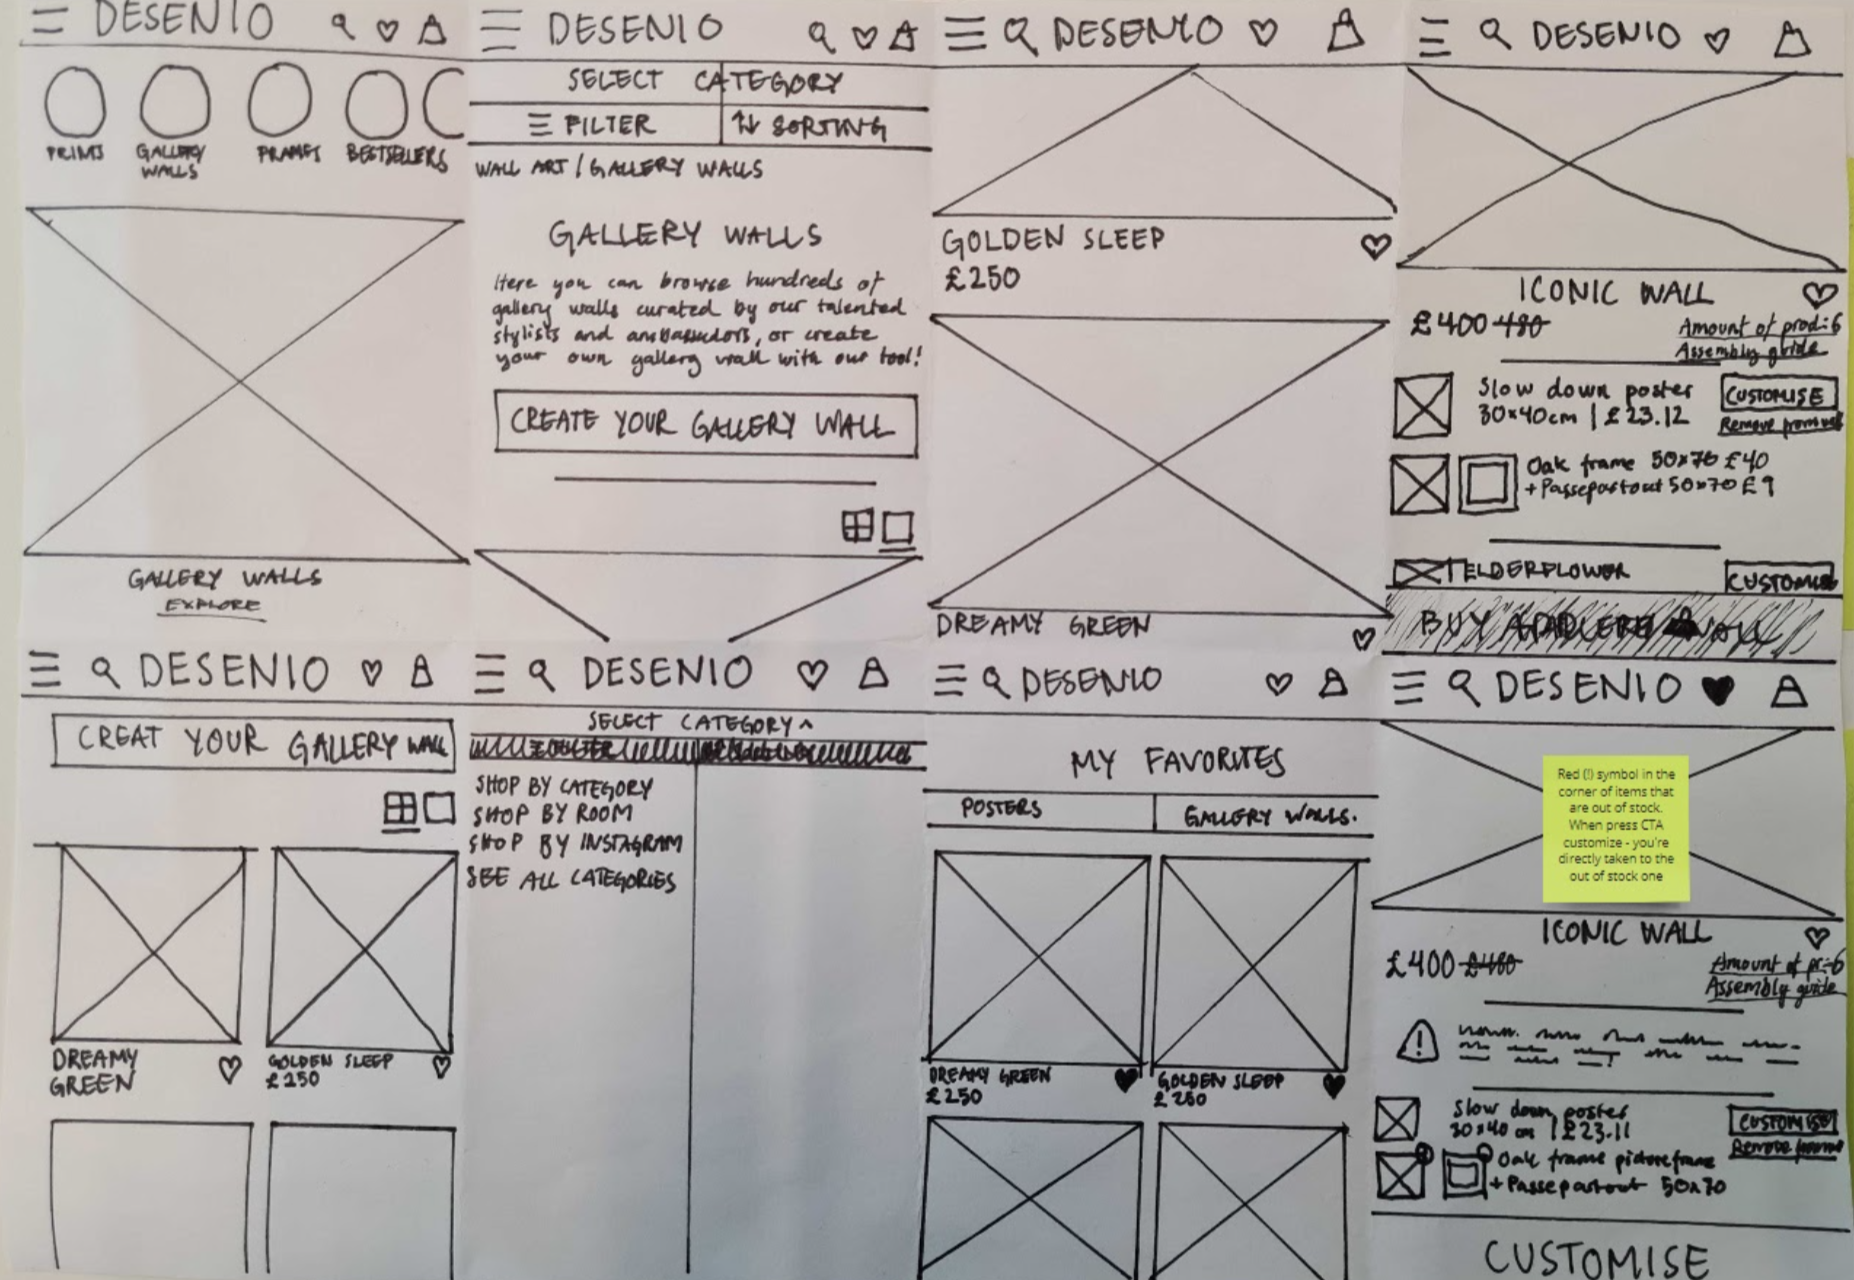 DESENIO
PRINTS
GALLERY
WALLS
FRAMES
BESTSELLERS
GALLERY WALLS
EXPLORE
DESENIO
SELECT CATEGORY
FILTER
SORTING
WALL ART / GALLERY WALLS
GALLERY WALLS
Here you can browse hundreds of
gallery walls curated by our talented
stylists and ambassadors, or create
your own gallery wall with our tool!
CREATE YOUR GALLERY WALL
DESENIO
GOLDEN SLEEP
£250
DREAMY GREEN
DESENIO
ICONIC WALL
£400 480
Amount of prod: 6
Assembly guide
Slow down poster
30x40cm | £23.12
CUSTOMISE
Remove from
Oak frame 50x70 £40
+ Passepartout 50x70 £9
ELDERFLOWER
CUSTOMISE
BUY
DESENIO
CREAT YOUR GALLERY WALL
DREAMY
GREEN
GOLDEN SLEEP
£250
DESENIO
SELECT CATEGORY ^
SHOP BY CATEGORY
SHOP BY ROOM
SHOP BY INSTAGRAM
SEE ALL CATEGORIES
DESENIO
MY FAVORITES
POSTERS
GALLERY WALLS.
DREAMY GREEN
£250
GOLDEN SLEEP
£250
DESENIO
Red (!) symbol in the
corner of items that
are out of stock.
When press CTA
customize - you're
directly taken to the
out of stock one
ICONIC WALL
£400 £480
Amount of pr: 6
Assembly guide
!
Slow down poster
30x40 cm | £23.11
CUSTOMISE
Remove
Oak frame picture frame
+ Passepartout 50x70
CUSTOMISE